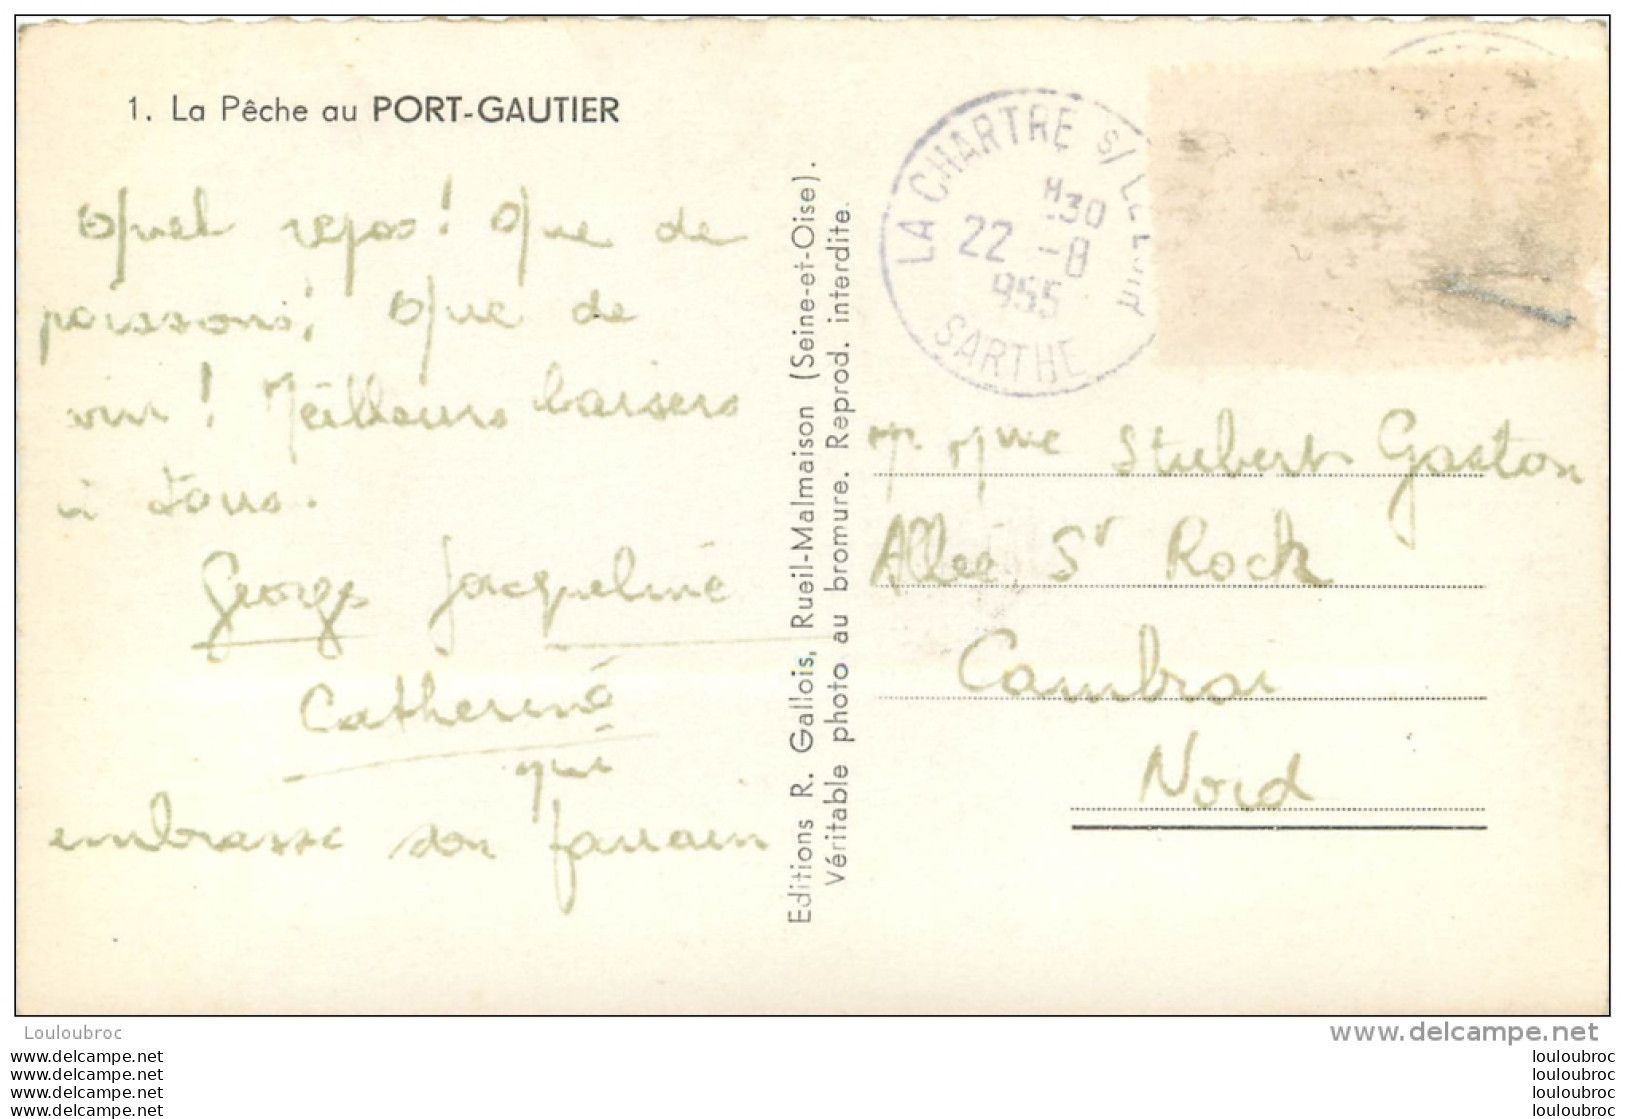 1. La Pêche au PORT-GAUTIER
Quel repos! Que de
poissons! Que de
vin! Meilleurs baisers
à tous.
Georges Jacqueline
Catherine
qui
embrasse son parrain
Editions R. Gallois, Rueil-Malmaison (Seine-et-Oise).
Véritable photo au bromure. Reprod. interdite.
LA CHARTRE S/ LE LOIR
H30
22 -8
955
SARTHE
M. Mme Stubert Gaston
Allée St Rock
Cambrai
Nord
Louloubroc
www.delcampe.net
www.delcampe.net
www.delcampe.net
www.delcampe.net
www.delcampe.net
louloubroc
louloubroc
louloubroc
louloubroc